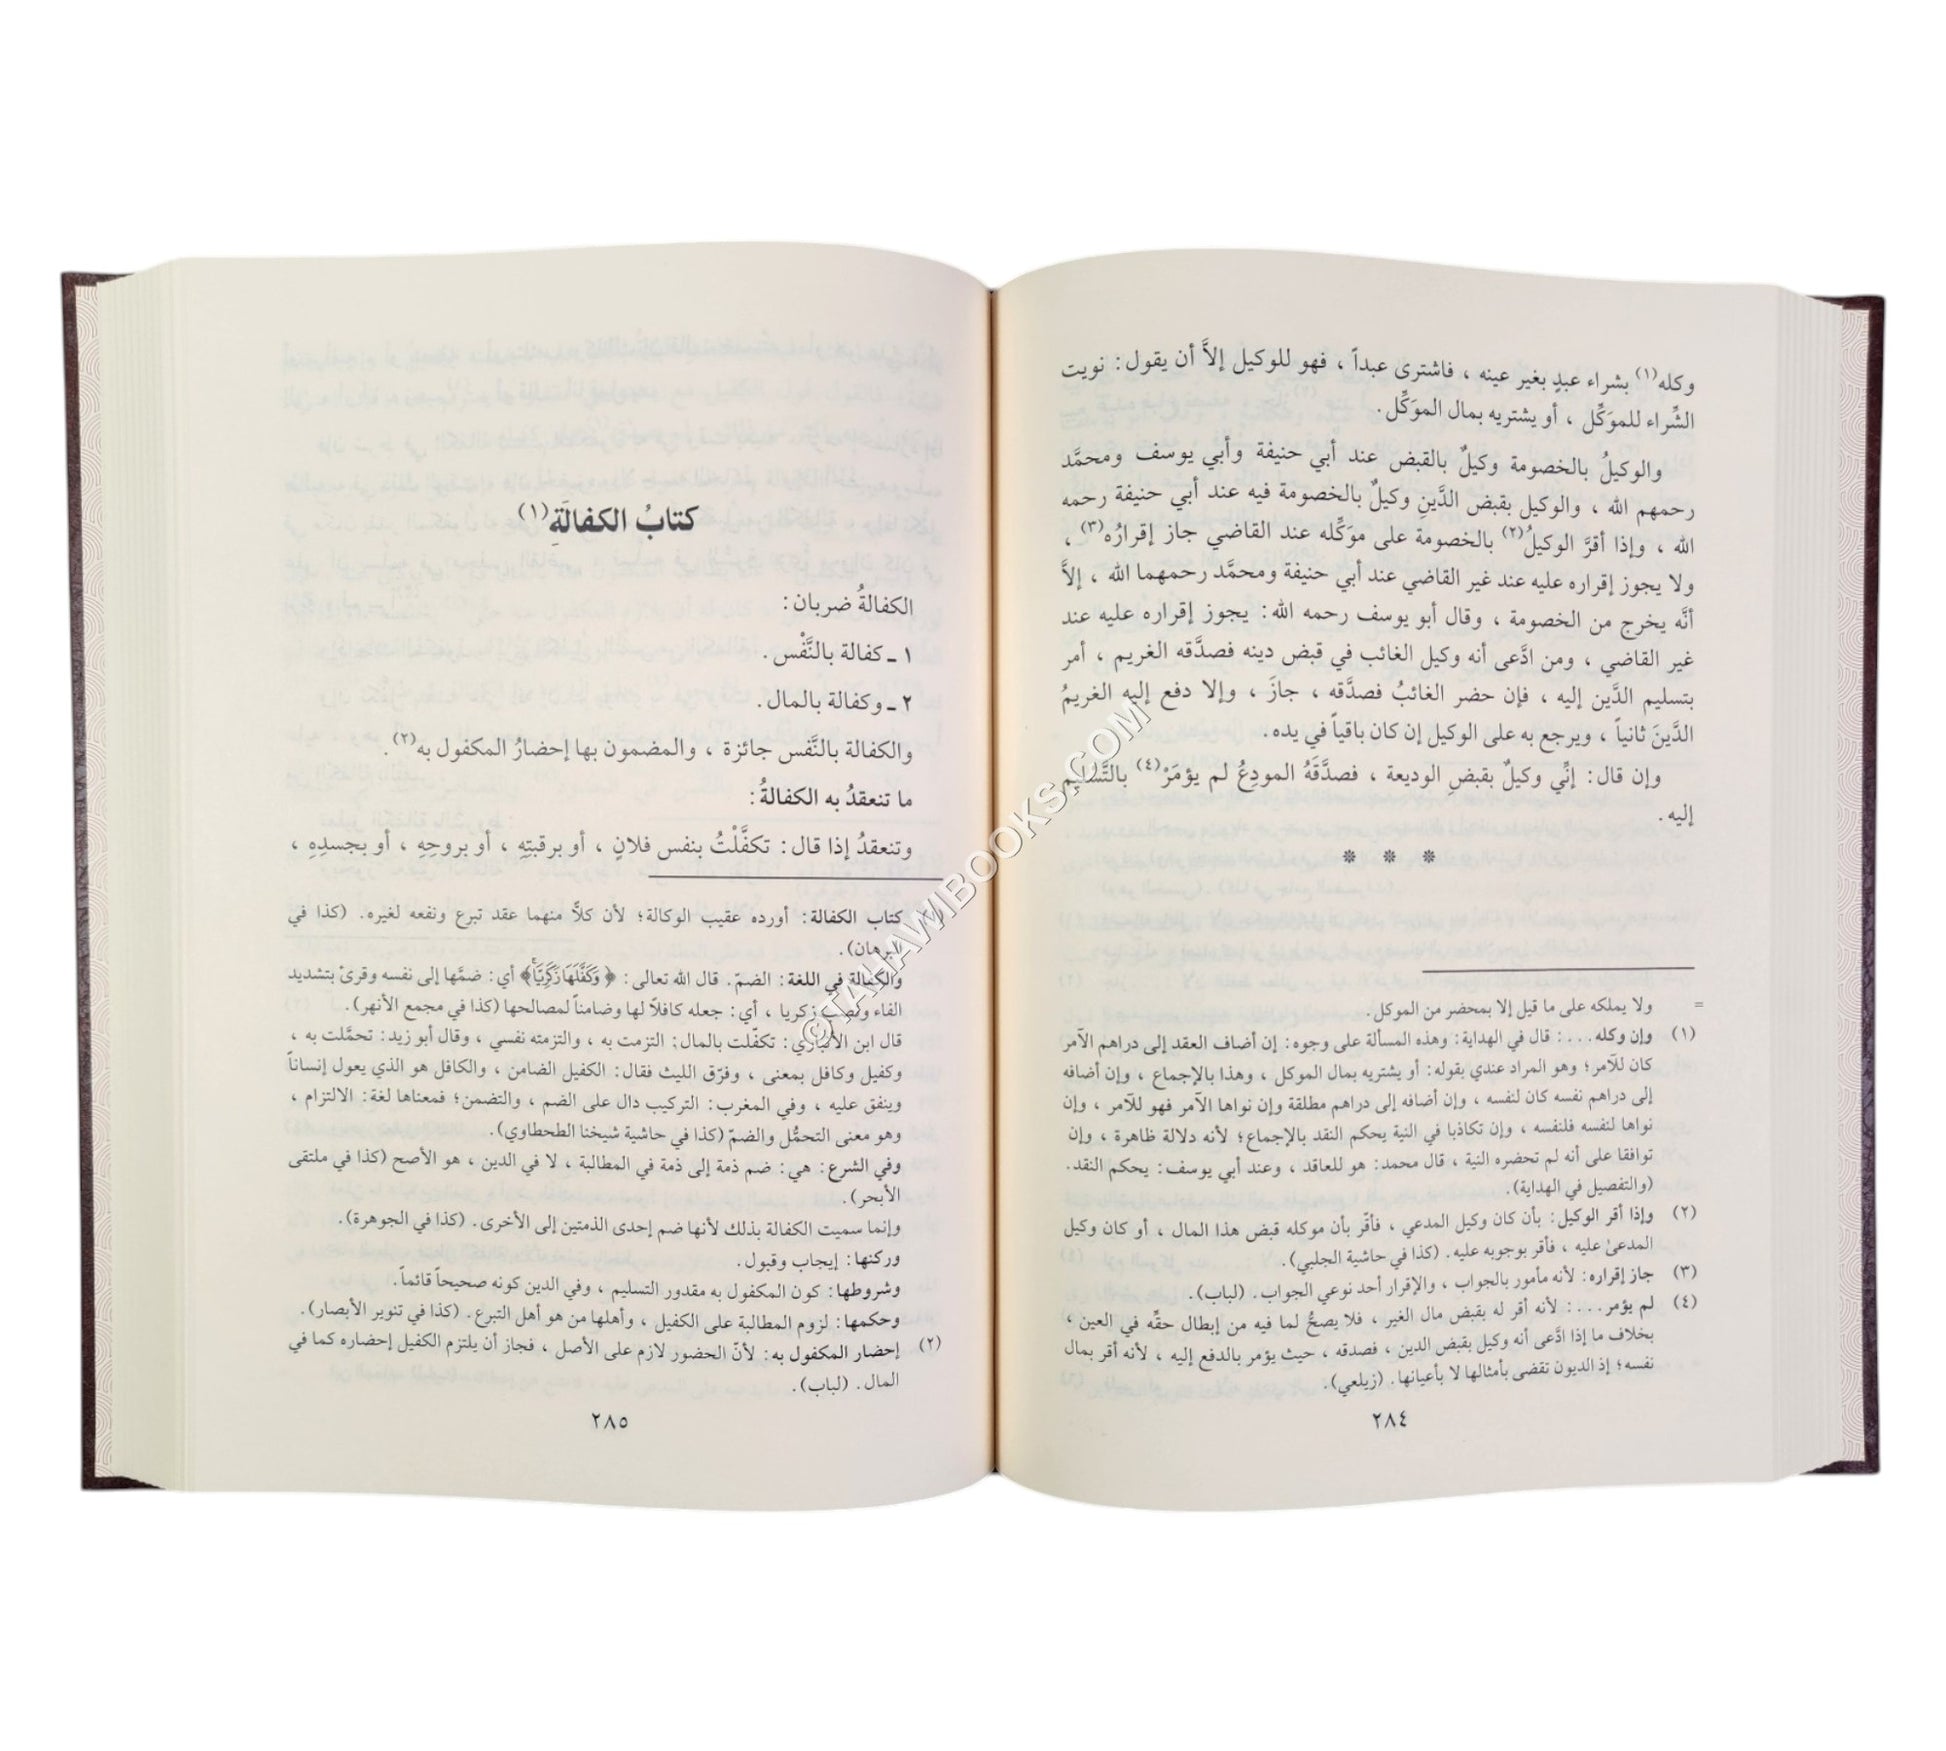 وكله(١) بشراء عبدٍ بغير عينه ، فاشترى عبداً ، فهو للوكيل إلاَّ أن يقول: نويت
الشِّراء للموَكِّل ، أو يشتريه بمال الموَكِّل.
والوكيلُ بالخصومة وكيلٌ بالقبض عند أبي حنيفة وأبي يوسف ومحمَّد
رحمهم الله ، والوكيل بقبض الدَّينِ وكيلٌ بالخصومة فيه عند أبي حنيفة رحمه
الله ، وإذا أقرَّ الوكيلُ(٢) بالخصومة على موَكِّله عند القاضي جاز إقرارُه(٣) ،
ولا يجوز إقراره عليه عند غير القاضي عند أبي حنيفة ومحمَّد رحمهما الله ، إلاَّ
أنَّه يخرج من الخصومة ، وقال أبو يوسف رحمه الله: يجوز إقراره عليه عند
غير القاضي ، ومن ادَّعى أنه وكيل الغائب في قبض دينه فصدَّقه الغريم ، أمر
بتسليم الدَّين إليه ، فإن حضر الغائبُ فصدَّقه ، جازَ ، وإلا دفع إليه الغريمُ
الدَّينَ ثانياً ، ويرجع به على الوكيل إن كان باقياً في يده.
وإن قال: إنِّي وكيلٌ بقبضِ الوديعة ، فصدَّقَهُ المودِعُ لم يؤمَرْ(٤) بالتَّسليم
إليه.
* * *
= ولا يملكه على ما قيل إلا بمحضر من الموكل.
(١) وإن وكله . . . : قال في الهداية: وهذه المسألة على وجوه: إن أضاف العقد إلى دراهم الآمر
كان للآمر؛ وهو المراد عندي بقوله: أو يشتريه بمال الموكل ، وهذا بالإجماع ، وإن أضافه
إلى دراهم نفسه كان لنفسه ، وإن أضافه إلى دراهم مطلقة وإن نواها الآمر فهو للآمر ، وإن
نواها لنفسه فلنفسه ، وإن تكاذبا في النية يحكم النقد بالإجماع؛ لأنه دلالة ظاهرة ، وإن
توافقا على أنه لم تحضره النية ، قال محمد: هو للعاقد ، وعند أبي يوسف: يحكم النقد.
(والتفصيل في الهداية).
(٢) وإذا أقر الوكيل: بأن كان وكيل المدعي ، فأقر بأن موكله قبض هذا المال ، أو كان وكيل
المدعىٰ عليه ، فأقر بوجوبه عليه. (كذا في حاشية الجلبي).
(٣) جاز إقراره: لأنه مأمور بالجواب ، والإقرار أحد نوعي الجواب. (لباب).
(٤) لم يؤمر . . . : لأنه أقر له بقبض مال الغير ، فلا يصحُّ لما فيه من إبطال حقِّه في العين ،
بخلاف ما إذا ادَّعى أنه وكيل بقبض الدين ، فصدقه ، حيث يؤمر بالدفع إليه ، لأنه أقر بمال
نفسه؛ إذ الديون تقضى بأمثالها لا بأعيانها. (زيلعي).
٢٨٤
كتابُ الكفالَةِ(١)
الكفالةُ ضربان:
١ ـ كفالة بالنَّفْس.
٢ ـ وكفالة بالمال.
والكفالة بالنَّفس جائزة ، والمضمون بها إحضارُ المكفول به(٢).
ما تنعقدُ به الكفالةُ:
وتنعقدُ إذا قال: تكفَّلْتُ بنفس فلانٍ ، أو برقبتِهِ ، أو بروحِهِ ، أو بجسدِهِ ،
كتاب الكفالة: أورده عقيب الوكالة؛ لأن كلاًّ منهما عقد تبرع ونفعه لغيره. (كذا في
البرهان).
والكفالة في اللغة: الضمّ. قال الله تعالى: ﴿وَكَفَّلَهَا زَكَرِيَّا﴾ أي: ضمَّها إلى نفسه وقرئ بتشديد
الفاء ونصب زكريا ، أي: جعله كافلاً لها وضامناً لمصالحها (كذا في مجمع الأنهر).
قال ابن الأنباري: تكفّلت بالمال: التزمت به ، والتزمته نفسي ، وقال أبو زيد: تحمَّلت به ،
وكفيل وكافل بمعنى ، وفرّق الليث فقال: الكفيل الضامن ، والكافل هو الذي يعول إنساناً
وينفق عليه ، وفي المغرب: التركيب دال على الضم ، والتضمن؛ فمعناها لغة: الالتزام ،
وهو معنى التحمُّل والضمّ (كذا في حاشية شيخنا الطحطاوي).
وفي الشرع: هي: ضم ذمة إلى ذمة في المطالبة ، لا في الدين ، هو الأصح (كذا في ملتقى
الأبحر).
وإنما سميت الكفالة بذلك لأنها ضم إحدى الذمتين إلى الأخرى. (كذا في الجوهرة).
وركنها: إيجاب وقبول.
وشروطها: كون المكفول به مقدور التسليم ، وفي الدين كونه صحيحاً قائماً.
وحكمها: لزوم المطالبة على الكفيل ، وأهلها من هو أهل التبرع. (كذا في تنوير الأبصار).
(٢) إحضار المكفول به: لأنّ الحضور لازم على الأصل ، فجاز أن يلتزم الكفيل إحضاره كما في
المال. (لباب).
٢٨٥
©TAHAWIBOOKS.COM